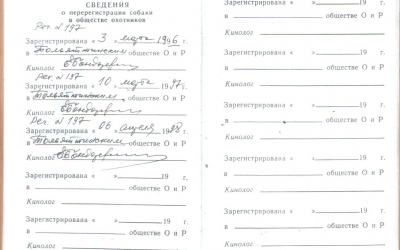 СВЕДЕНИЯ
о перерегистрации собаки
в обществе охотников
Рег. N 197
Зарегистрирована « 3 » марта 1996 г.
в Тольяттинском обществе О и Р
Кинолог
Рег. N 197
Зарегистрирована « 10 » марта 1997 г.
в Тольяттинским обществе О и Р
Кинолог
Рег. N 197
Зарегистрирована « 06 » апреля 1998 г.
в Тольяттинским обществе О и Р
Кинолог
Зарегистрирована « » 19 г.
в обществе О и Р
Кинолог
Зарегистрирована « » 19 г.
в обществе О и Р
Зарегистрирована « » 19 г.
в обществе О и Р
Кинолог
Зарегистрирована « » 19 г.
в обществе О и Р
Кинолог
Зарегистрирована « » 19 г.
в обществе О и Р
Кинолог
Зарегистрирована « » 19 г.
в обществе О и Р
Кинолог
Зарегистрирована « » 19 г.
в обществе О и Р
Кинолог